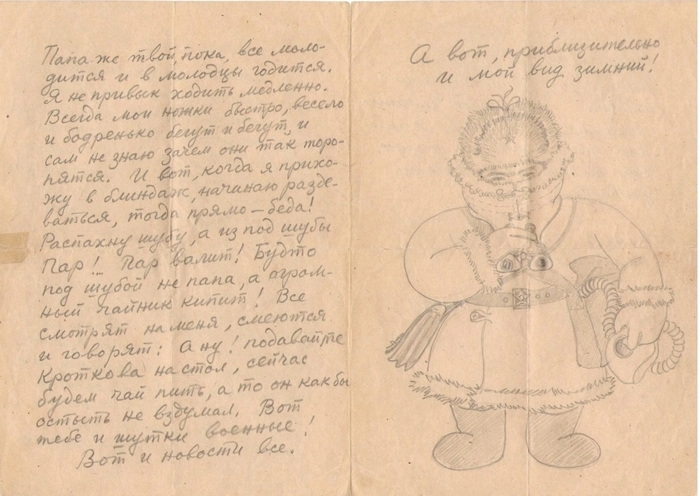 Папа же твой, пока, все моло-
дится и в молодцы годится.
Я не привык ходить медленно.
Всегда мои ножки быстро, весело
и бодренько бегут и бегут, и
сам не знаю зачем они так торо-
пятся. И вот, когда я прихо-
жу в блиндаж, начинаю разде-
ваться, тогда прямо – беда!
Распахну шубу, а из под шубы
Пар! Пар валит! Будто
под шубой не папа, а огром-
ный чайник кипит! Все
смотрят на меня, смеются
и говорят: А ну! подавайте
Кроткова на стол, сейчас
будем чай пить, а то он как бы
остыть не вздумал. Вот
тебе и шутки военные!
Вот и новости все.
А вот, приблизительно
и мой вид зимний!